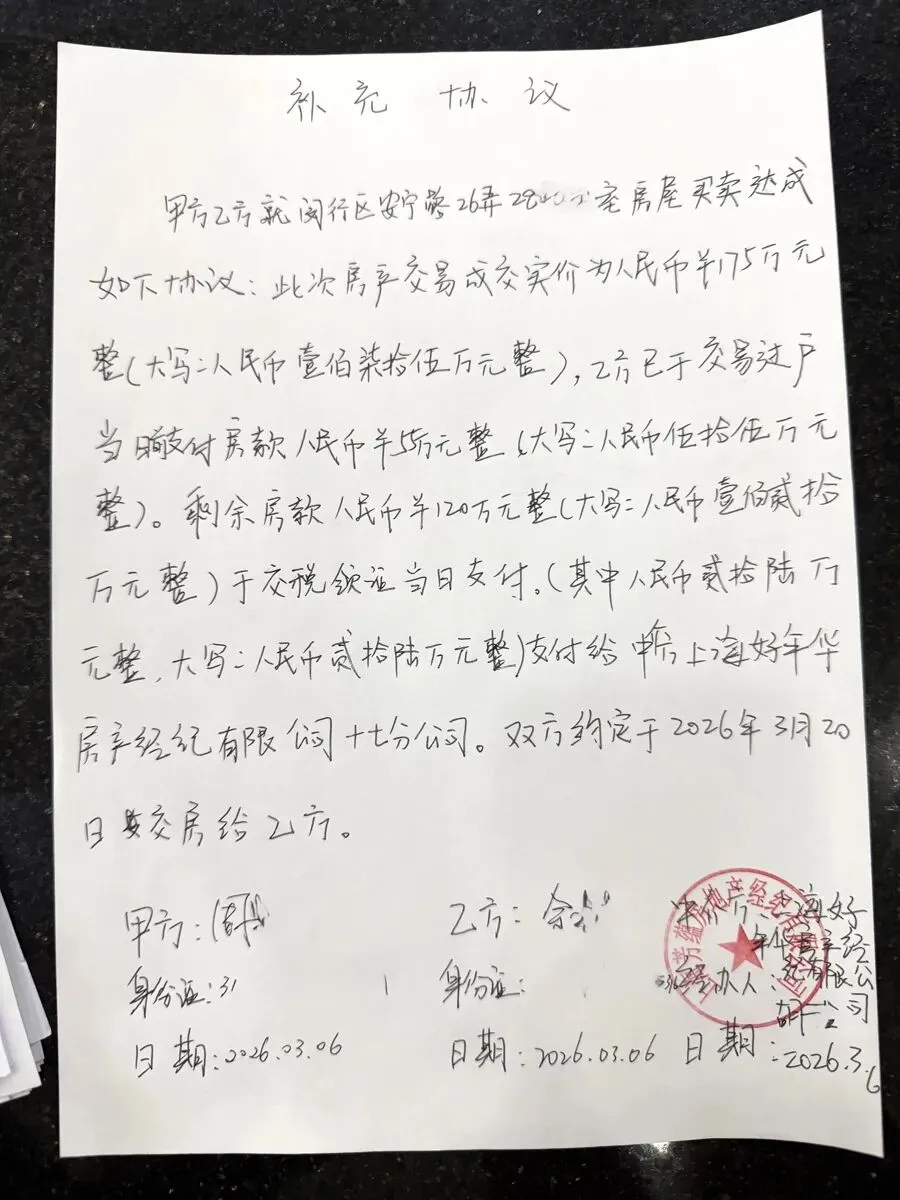 补充 协议
甲方乙方就闵行区安宁路26弄28室房屋买卖达成
如下协议：此次房产交易成交实价为人民币¥175万元
整(大写：人民币壹佰柒拾伍万元整)，乙方已于交易过户
当日前支付房款人民币¥55万元整(大写：人民币伍拾伍万元
整)。剩余房款人民币¥120万元整(大写：人民币壹佰贰拾
万元整)于交税领证当日支付。(其中人民币贰拾陆万
元整，大写：人民币贰拾陆万元整)支付给中介方上海好年华
房产经纪有限公司十七分公司。双方约定于2026年3月20
日交房给乙方。
甲方：周 乙方：余 中介方：上海好
年华房产经
身份证：31 身份证： 经办人：纪有限公
司
日期：2026.03.06 日期：2026.03.06 日期：2026.3.6
房地产经纪有限公司